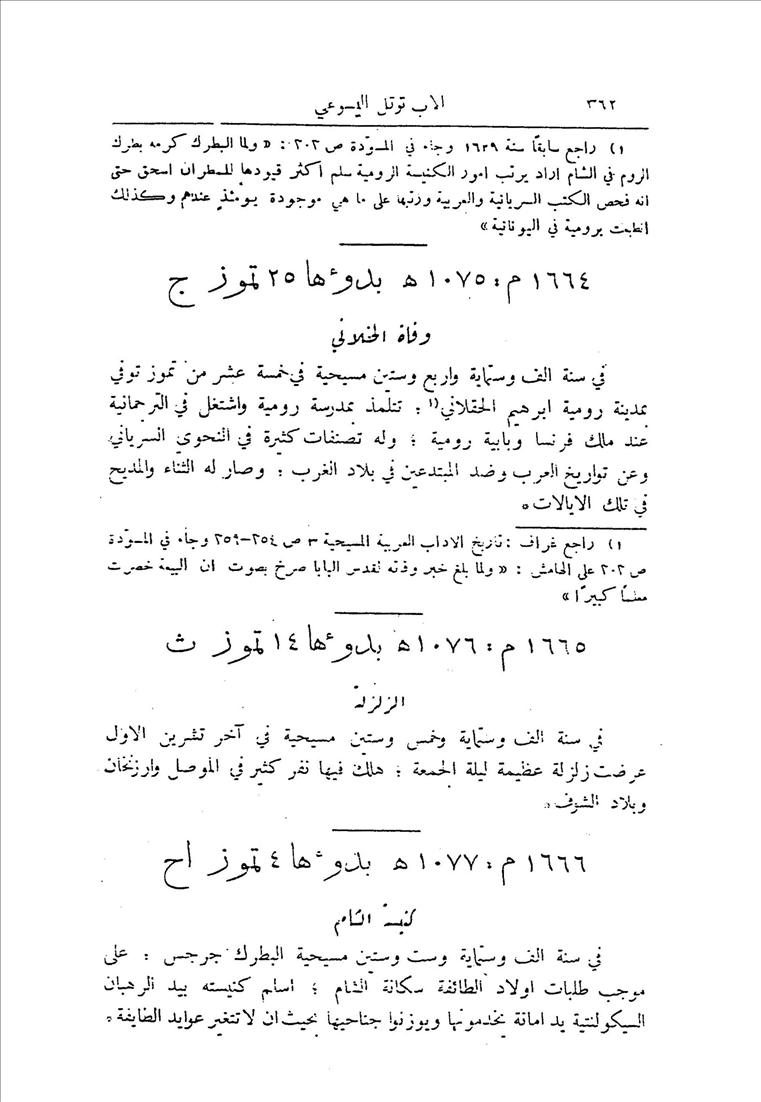 ٣٦٢ الاب توتل اليسوعي
١) راجع سابقاً سنة ١٦٣٩ وجاء في المسودّة ص ٢٠٢ : « ولما البطرك كرمه بطرك
الروم في الشام اراد يرتب امور الكنيسة الرومية سلم اكثر قيودها للمطران اسحق حتى
انه فحص الكتب السريانية والعربية ورتبها على ما هي موجودة يومئذٍ عندهم وكذلك
انطبعت برومية في اليونانية »
١٦٦٤ م : ١٠٧٥ ه بدوءها ٢٥ تموز ج
وفاة الحقلاني
في سنة الف وستماية واربع وستين مسيحية في خمسة عشر من تموز توفي
بمدينة رومية ابرهيم الحقلاني١) : تتلمذ بمدرسة رومية واشتغل في الترجمانية
عند ملك فرنسا وبابية رومية ؛ وله تصنفات كثيرة في النحوي السرياني
وعن تواريخ العرب وضد المبتدعين في بلاد الغرب : وصار له الثناء والمديح
في تلك الايالات ٠
١) راجع غراف : تاريخ الاداب العربية المسيحية ٣ ص ٢٥٤–٢٥٩ وجاء في المسودّة
ص ٢٠٢ على الهامش : « ولما بلغ خبر وفاته لقدس البابا صرخ بصوت ان البيعة خصرت
معلماً كبيرًا »
١٦٦٥ م : ١٠٧٦ ه بدوءها ١٤ تموز ث
الزلزلة
في سنة الف وستماية وخمس وستين مسيحية في آخر تشرين الاول
عرضت زلزلة عظيمة ليلة الجمعة ؛ هلك فيها نفر كثير في الموصل وارزنخان
وبلاد الشوف ٠
١٦٦٦ م : ١٠٧٧ ه بدوءها ٤ تموز اح
كنيسة الشام
في سنة الف وستماية وست وستين مسيحية البطرك جرجس : على
موجب طلبات اولاد الطائفة سكانة الشام ؛ اسلم كنيسته بيد الرهبان
السيكولنتية يد امانة يخدمونها ويوزنوا جناحيها بحيث ان لا تتغير عوايد الطايفة ٠